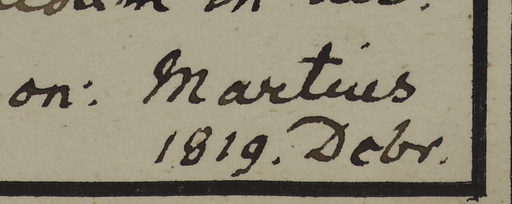 on: Martius
1819. Debr.